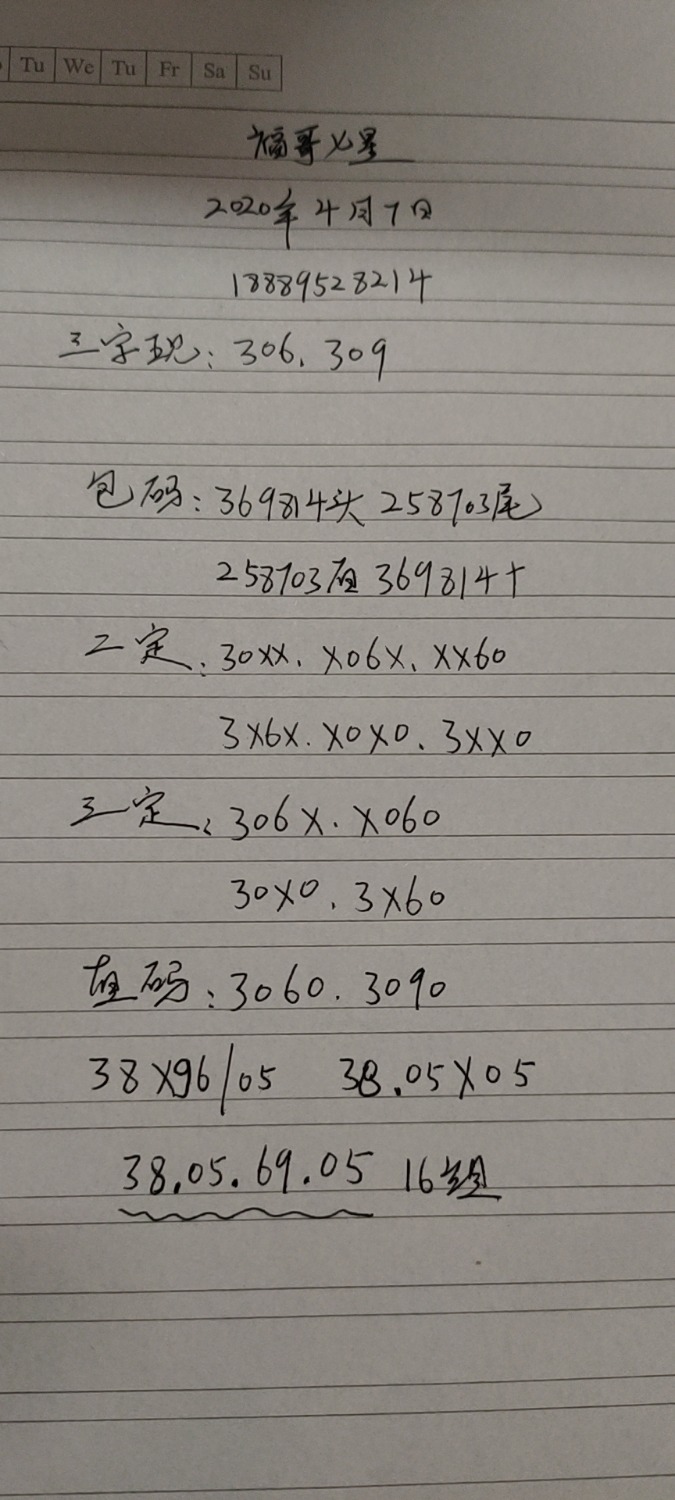 Tu We Tu Fr Sa Su
福哥七星
2020年4月7日
18889528214
三字现：306.309
包码：369814头 258703尾
258703百 369814十
二定：30XX. X06X. XX60
3X6X. X0X0. 3XX0
三定：306X. X060
30X0. 3X60
直码：3060. 3090
38X96/05 38.05X05
38.05.69.05 16组